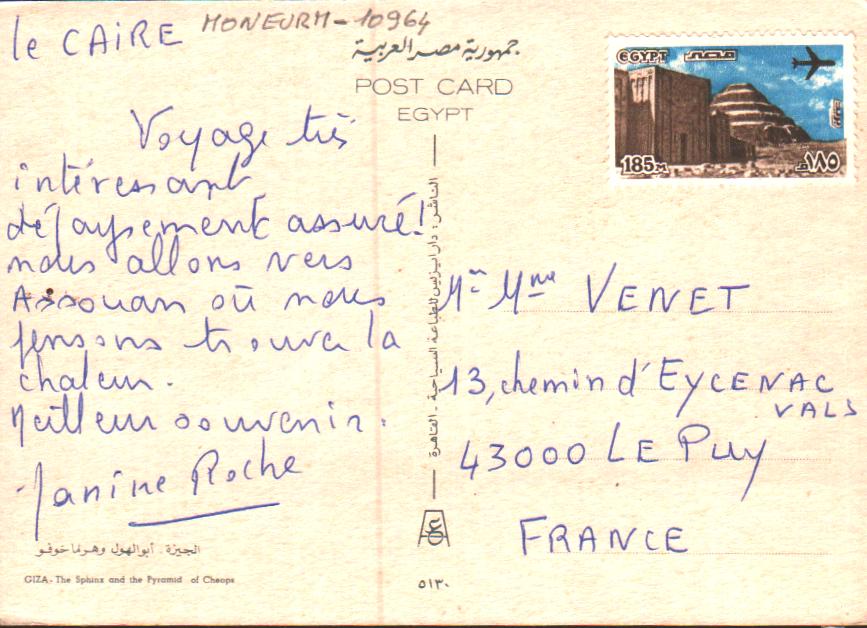 le CAIRE
MONEURM-10964
جمهورية مصر العربية
POST CARD
EGYPT
EGYPT مصر
185M ١٨٥
Voyage très
intéressant
dépaysement assuré!
nous allons vers
Assouan où nous
pensons trouver la
chaleur.
Meilleur souvenir.
Janine Roche
الجيزة - أبو الهول وهرم خوفو
GIZA - The Sphinx and the Pyramid of Cheops
الناشر: دار ايزيس للطباعة السياحية - القاهرة
٥١٣٠
Mr Mme VENET
13, chemin d'EYCENAC
VALS
43000 LE PUY
FRANCE